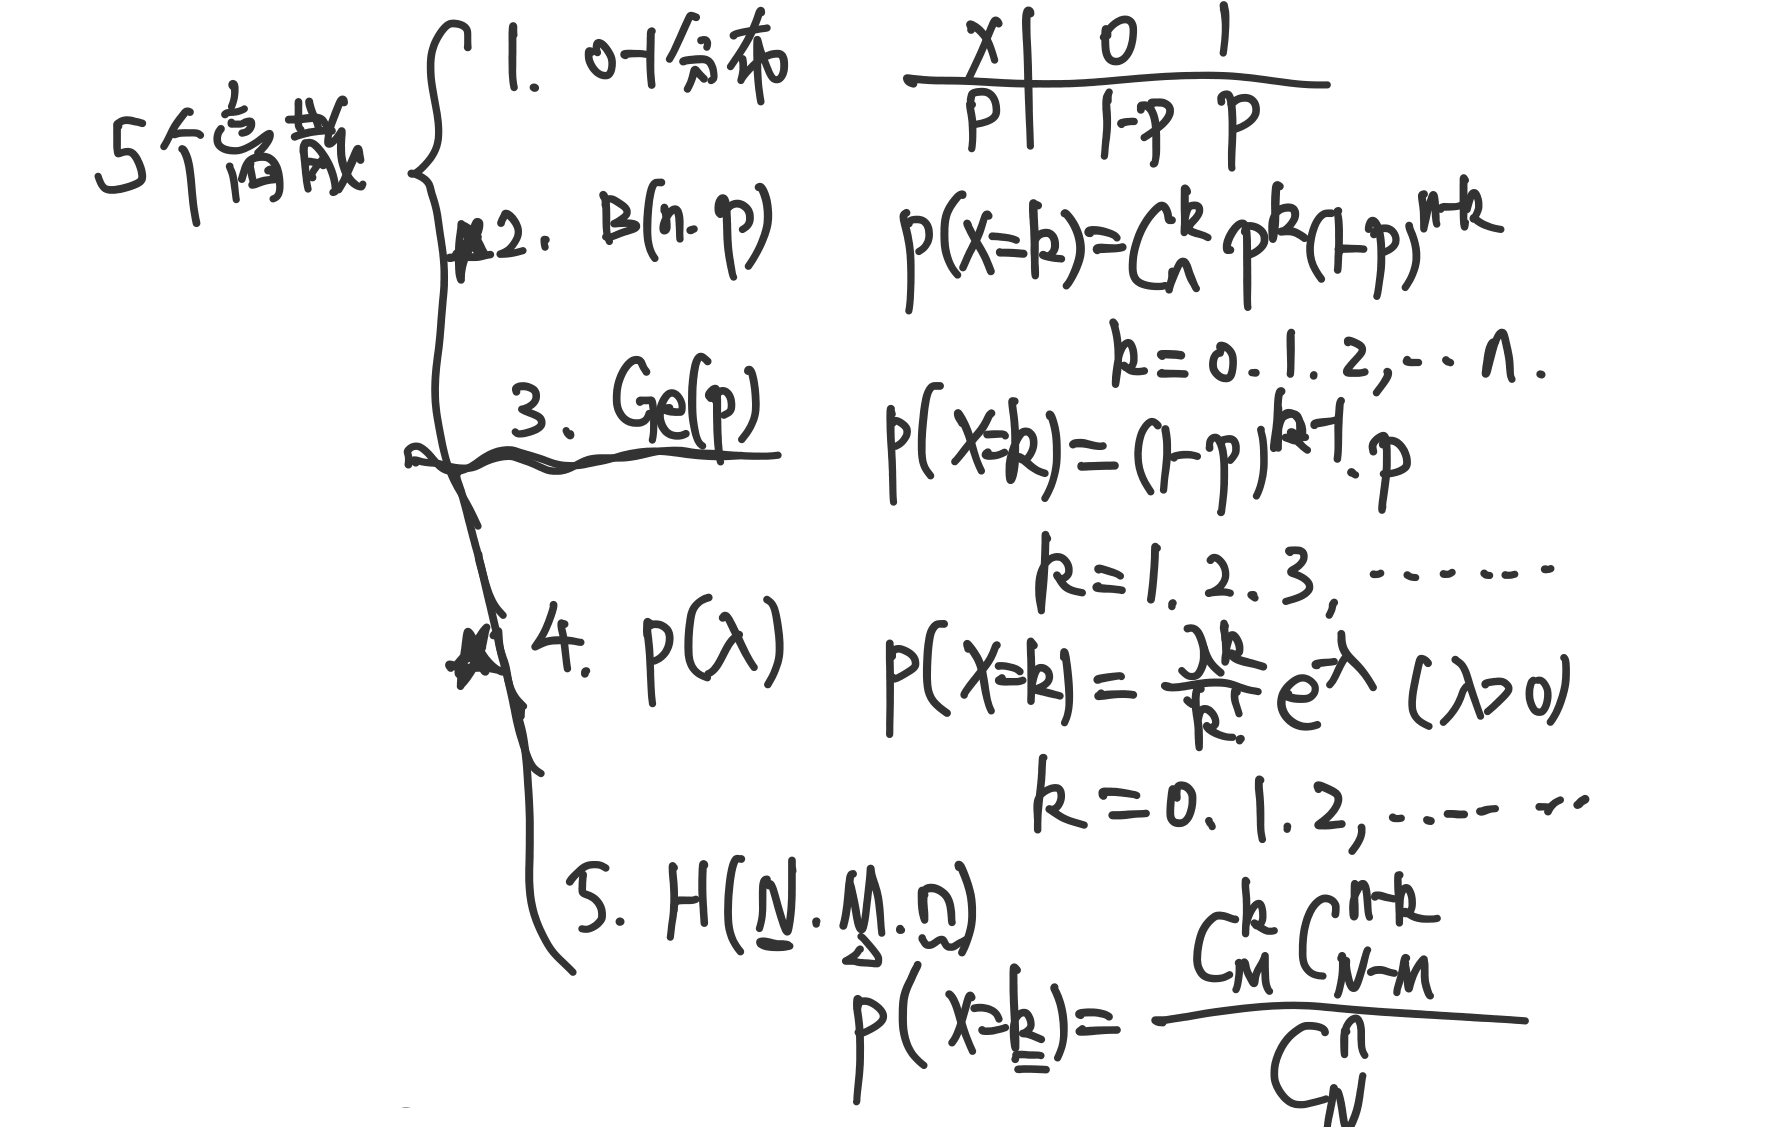 5个离散
1. 0-1分布
X | 0 1
P | 1-p p
★2. B(n.p)
p(X=k)=C_n^k p^k(1-p)^{n-k}
k=0.1.2,…n.
3. Ge(p)
p(X=k)=(1-p)^{k-1}.p
k=1.2.3,……
★4. p(λ)
p(X=k)=\frac{λ^k}{k!}e^{-λ} (λ>0)
k=0.1.2,……
5. H(N.M.n)
p(X=k)=\frac{C_M^k C_{N-M}^{n-k}}{C_N^n}